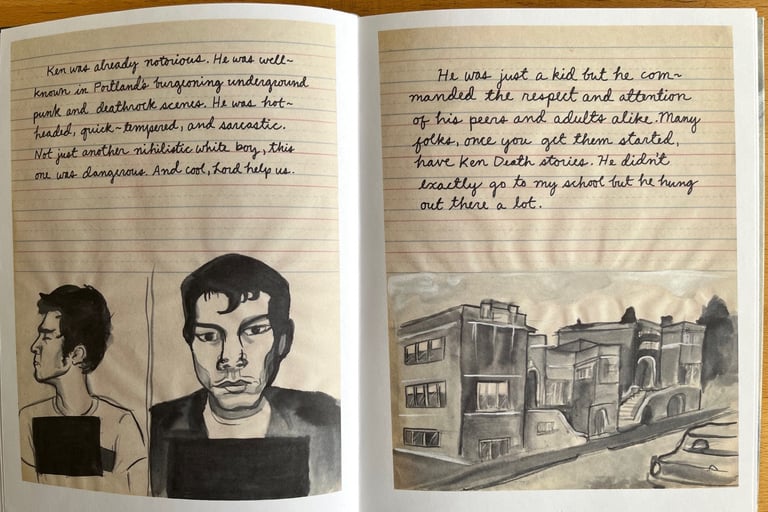 Ken was already notorious. He was well~
known in Portland's burgeoning underground
punk and deathrock scenes. He was hot~
headed, quick~tempered, and sarcastic.
Not just another nihilistic white boy, this
one was dangerous. And cool, Lord help us.
He was just a kid but he com~
manded the respect and attention
of his peers and adults alike. Many
folks, once you get them started,
have Ken Death stories. He didn't
exactly go to my school but he hung
out there a lot.